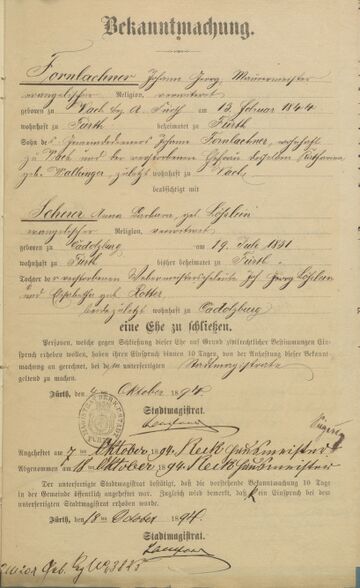 Bekanntmachung.
Fornbachner Johann Georg Maurermeister
evangelischer Religion, verwitwet
geboren zu Vach bez. A. Fürth am 13. Februar 1844
wohnhaft zu Fürth beheimatet zu Fürth
Sohn des Johann Fornbachner, wohnhaft
zu Vach und der verstorbenen
geb. zuletzt wohnhaft zu Vach,
beabsichtigt mit
Scheuer Anna Barbara, geb. Löhlein
evangelischer Religion, verwitwet
geboren zu Cadolzburg am 19. Juli 1851
wohnhaft zu Fürth bisher beheimatet zu Fürth.
Tochter der verstorbenen Webermeisterseheleute Joh. Georg Löhlein
und Elisabetha geb. Rotter,
beide zuletzt wohnhaft zu Cadolzburg
eine Ehe zu schließen.
Personen, welche gegen Schließung dieser Ehe auf Grund zivilrechtlicher Bestimmungen Ein-
spruch erheben wollen, haben ihren Einspruch binnen 10 Tagen, von der Anheftung dieser Bekannt-
machung an gerechnet, bei dem unterfertigten Stadtmagistrate
geltend zu machen.
Fürth, den Oktober 1894.
Stadtmagistrat.
Angeheftet am 7 Oktober 1894. Reik Hausmeister
Abgenommen am 18 Oktober 1894. Reik Hausmeister
Der unterfertigte Stadtmagistrat bestätigt, daß die vorstehende Bekanntmachung 10 Tage
in der Gemeinde öffentlich angeheftet war. Zugleich wird bemerkt, daß kein Einspruch bei dem
unterfertigten Stadtmagistrat erhoben wurde.
Fürth, den 18 October 1894.
Stadtmagistrat.